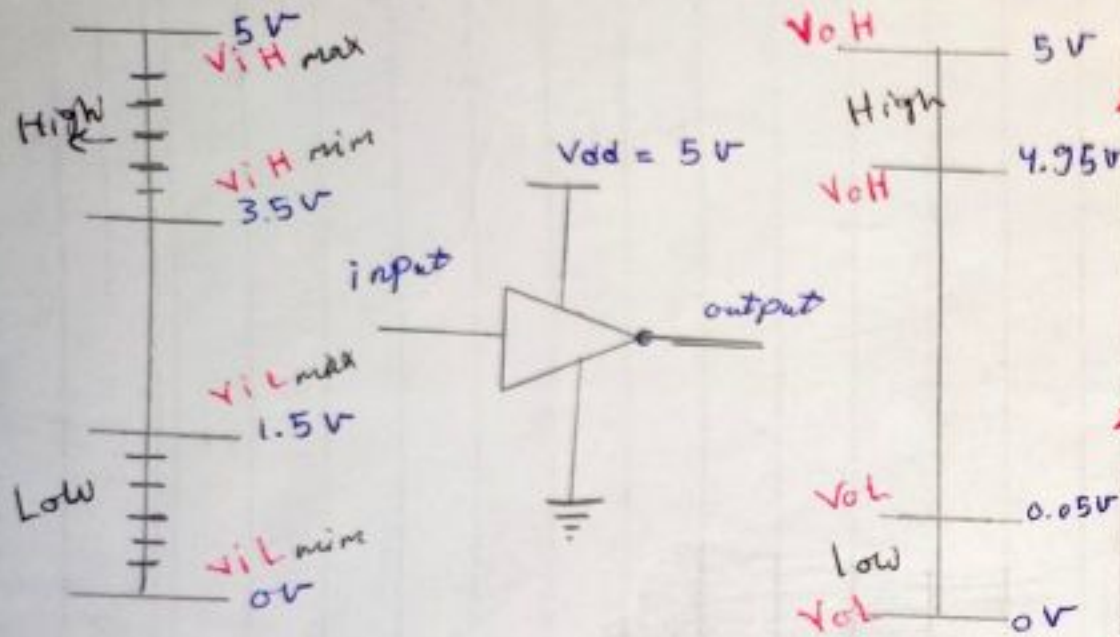 5 V
ViH max
High
ViH mim
3.5 V
ViL max
1.5 V
Low
ViL mim
0V
Vdd = 5 V
input
output
VoH
5 V
High
4.95V
VoH
VoL
0.05V
low
VoL
0V